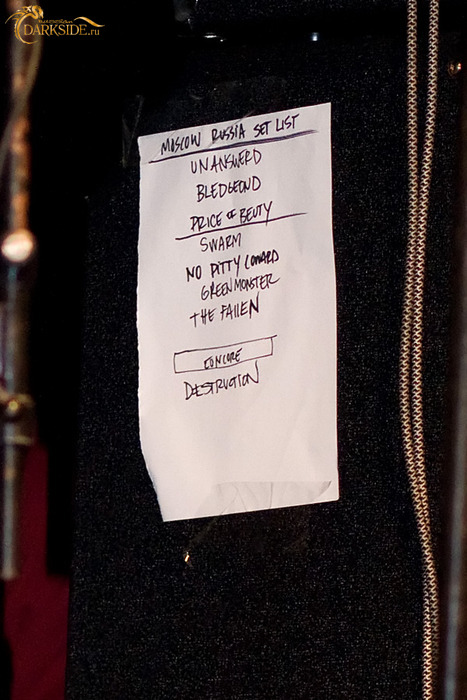 DARKSIDE.ru
MOSCOW RUSSIA SET LIST
UNANSWERD
BLEDEOND
PRICE OF BEUTY
SWARM
NO PITTY COWARD
GREENMONSTER
THE FALLEN
ENCORE
DESTRUCTION